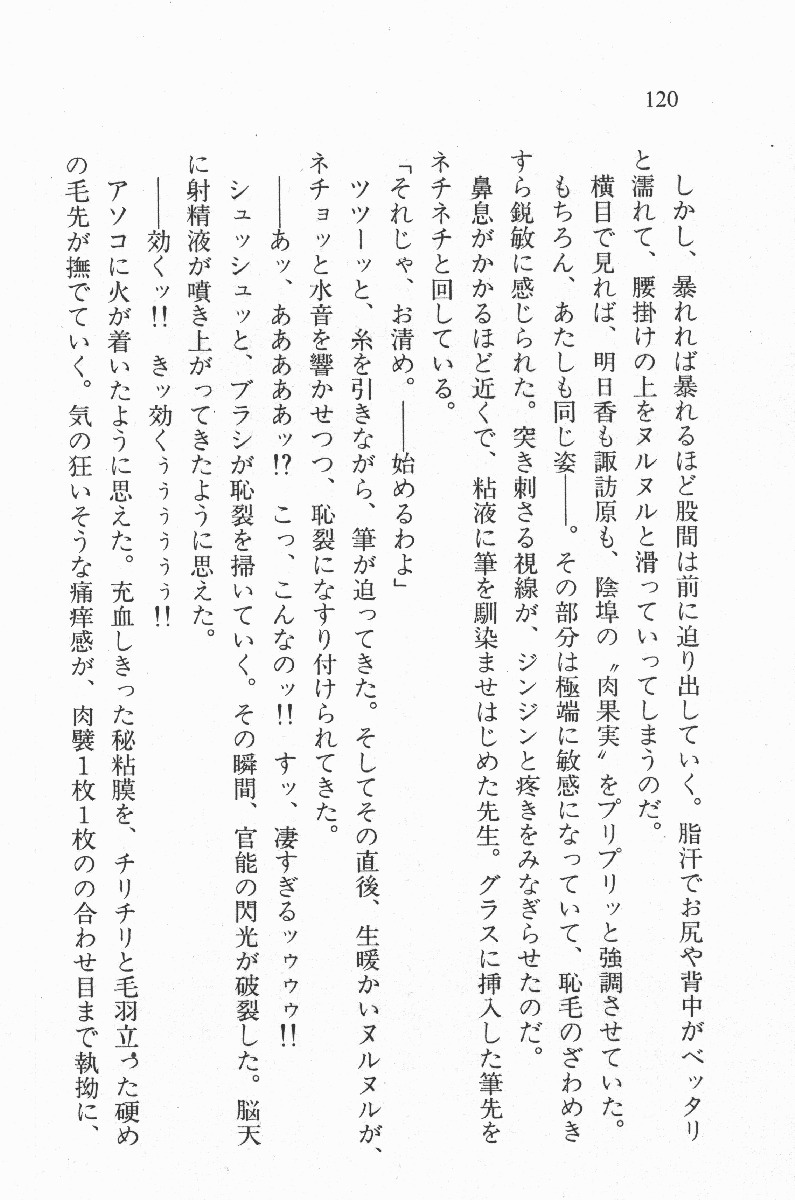 120
しかし、暴れれば暴れるほど股間は前に迫り出していく。脂汗でお尻や背中がベッタリ
と濡れて、腰掛けの上をヌルヌルと滑っていってしまうのだ。
横目で見れば、明日香も諏訪原も、陰埠の〝肉果実〟をプリプリッと強調させていた。
もちろん、あたしも同じ姿――。その部分は極端に敏感になっていて、恥毛のざわめき
すら鋭敏に感じられた。突き刺さる視線が、ジンジンと疼きをみなぎらせたのだ。
鼻息がかかるほど近くで、粘液に筆を馴染ませはじめた先生。グラスに挿入した筆先を
ネチネチと回している。
「それじゃ、お清め。――始めるわよ」
ツツーッと、糸を引きながら、筆が迫ってきた。そしてその直後、生暖かいヌルヌルが、
ネチョッと水音を響かせつつ、恥裂になすり付けられてきた。
――あッ、あああああッ!?　こっ、こんなのッ!!　すッ、凄すぎるッゥゥゥ!!
シュッシュッと、ブラシが恥裂を掃いていく。その瞬間、官能の閃光が破裂した。脳天
に射精液が噴き上がってきたように思えた。
――効くッ!!　きッ効くぅぅぅぅぅぅ!!
アソコに火が着いたように思えた。充血しきった秘粘膜を、チリチリと毛羽立った硬め
の毛先が撫でていく。気の狂いそうな痛痒感が、肉襞１枚１枚のの合わせ目まで執拗に、